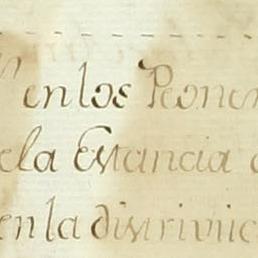 en los Peoner
ela Estancia
en la distrivuic